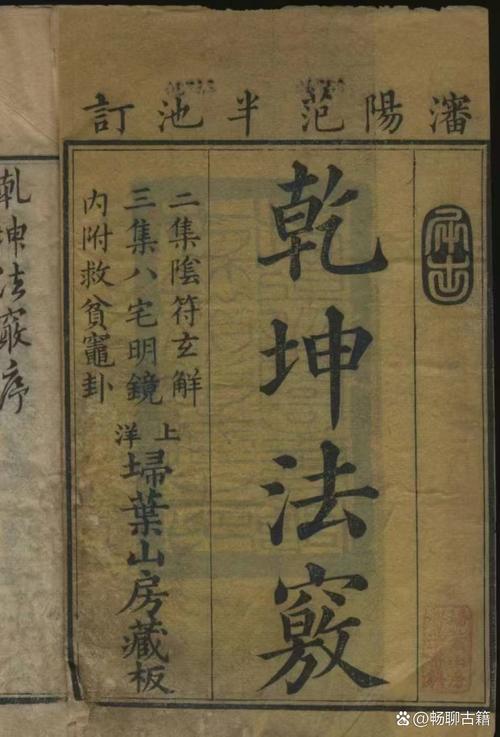 瀋陽范半池訂
乾坤法竅
二集陰符玄解
三集八宅明鏡
內附救貧竈卦
上洋
埽葉山房藏板
乾坤法竅序
@畅聊古籍